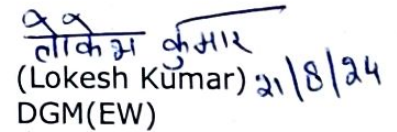 लोकेश कुमार
(Lokesh Kumar) 21/8/24
DGM(EW)